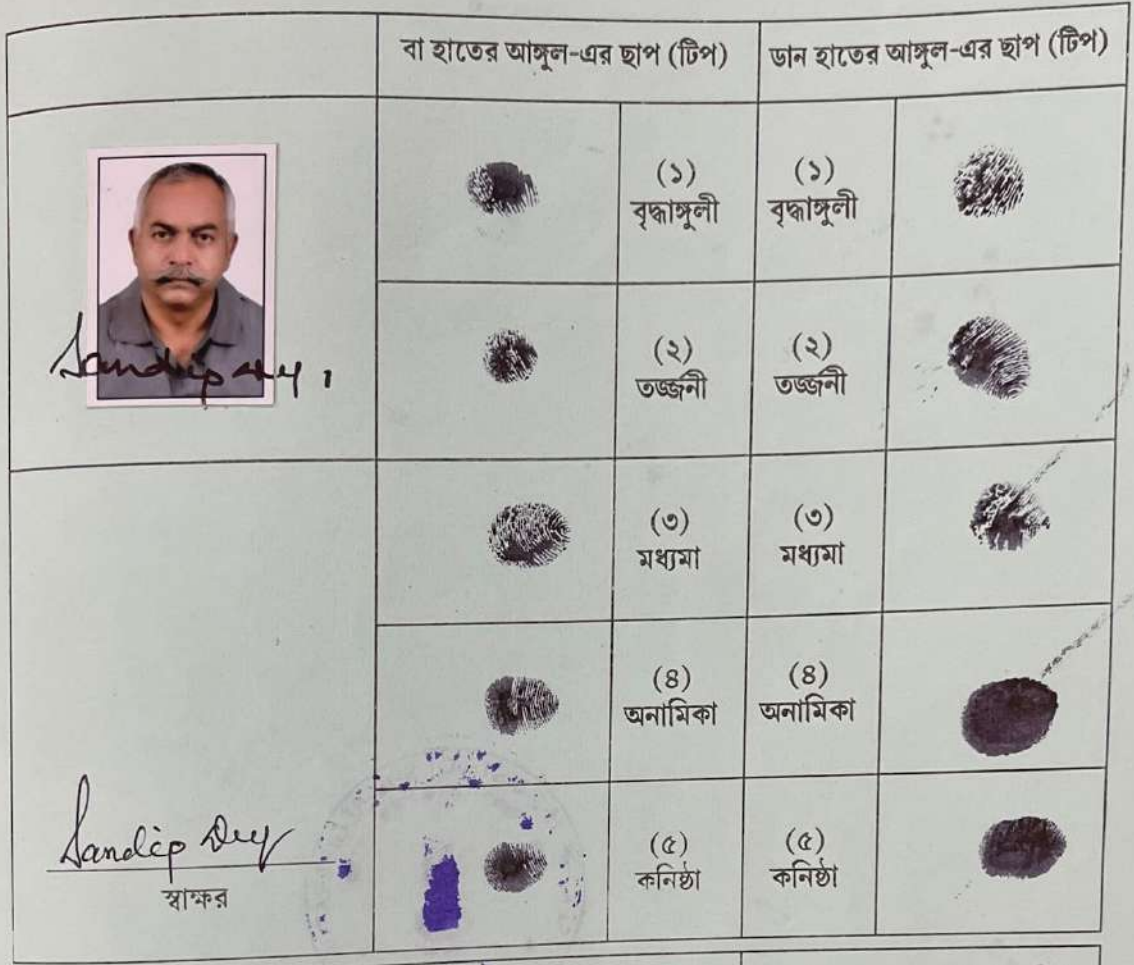 বা হাতের আঙ্গুল-এর ছাপ (টিপ)
ডান হাতের আঙ্গুল-এর ছাপ (টিপ)
(১)
বৃদ্ধাঙ্গুলী
(১)
বৃদ্ধাঙ্গুলী
Sandip Dey
(২)
তজ্জনী
(২)
তজ্জনী
(৩)
মধ্যমা
(৩)
মধ্যমা
(৪)
অনামিকা
(৪)
অনামিকা
Sandip Dey
স্বাক্ষর
(৫)
কনিষ্ঠা
(৫)
কনিষ্ঠা